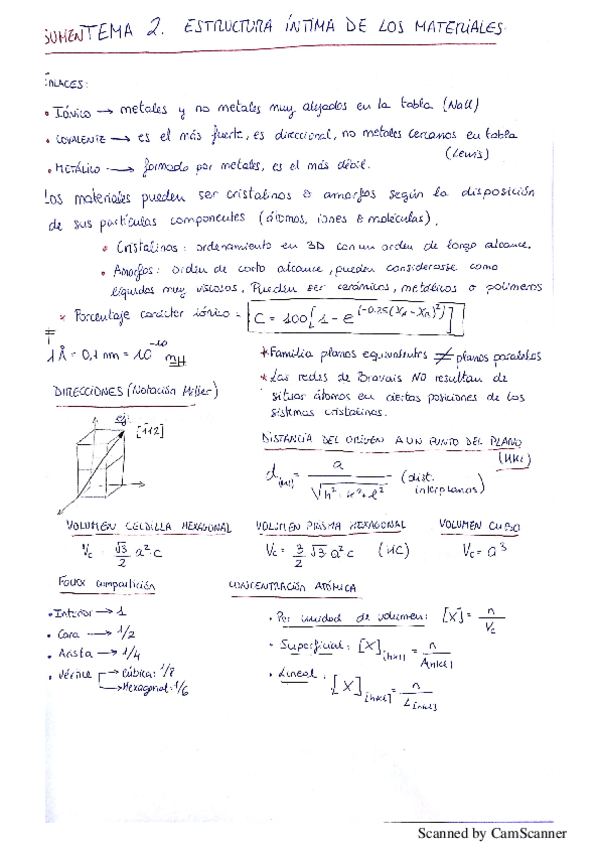 SUMEN TEMA 2. ESTRUCTURA ÍNTIMA DE LOS MATERIALES.
ENLACES:
• Iónico → metales y no metales muy alejados en la tabla (NaCl)
• COVALENTE → es el más fuerte, es direccional, no metales cercanos en tabla
(Lewis)
• METÁLICO → formado por metales, es el más débil.
Los materiales pueden ser cristalinos o amorfos según la disposición
de sus partículas componentes (átomos, iones o moléculas).
• Cristalinos: ordenamiento en 3D con un orden de largo alcance.
• Amorfos: orden de corto alcance, pueden considerarse como
líquidos muy viscosos. Pueden ser cerámicos, metálicos o polímeros
* Porcentaje carácter iónico = C = 100[1 - e^(-0.25(X_A - X_B)^2)]
1 Å = 0,1 nm = 10^-10 m
* Familia planos equivalentes ≠ planos paralelos
* Las redes de Bravais NO resultan de
situar átomos en ciertas posiciones de los
sistemas cristalinos.
DIRECCIONES (Notación Miller)
ej:
[112]
DISTANCIA DEL ORIGEN A UN PUNTO DEL PLANO
(HKL)
d(hkl) = a / √(h² + k² + l²) (dist. interplanos)
VOLUMEN CELDILLA HEXAGONAL
Vc = √3/2 a²·c
VOLUMEN PRISMA HEXAGONAL
Vc = 3/2 √3 a²c (HC)
VOLUMEN CUBO
Vc = a³
compartición
• Interior → 1
• Cara → 1/2
• Arista → 1/4
• Vértice → Cúbica: 1/8
→ Hexagonal: 1/6
CONCENTRACIÓN ATÓMICA
• Por unidad de volumen: [X] = n / Vc
• Superficial: [X](hkl) = n / A(hkl)
• Lineal: [X][hkl] = n / L[hkl]
Scanned by CamScanner